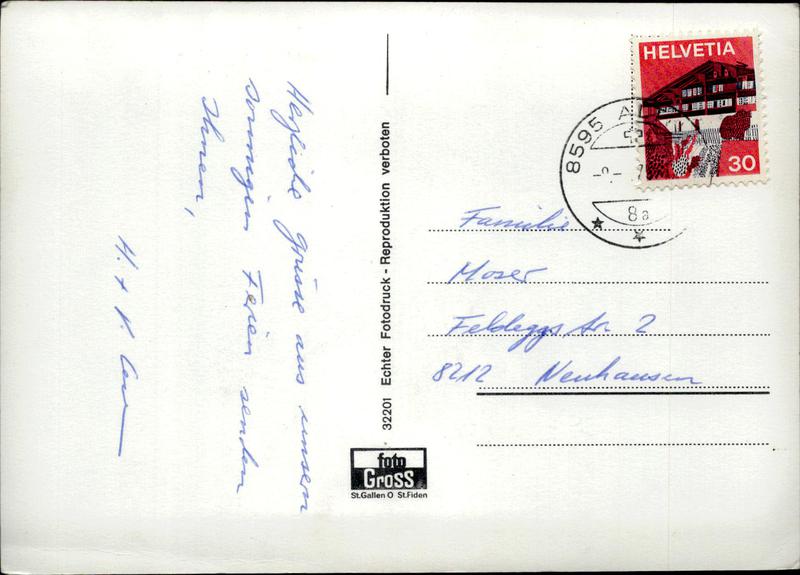 Herzliche Grüsse aus unsern
sonnigen Ferien senden
Ihnen,
H. + K.
32201 Echter Fotodruck - Reproduktion verboten
foto
Gross
St.Gallen O St.Fiden
HELVETIA
30
8595
8a
Familie
Moser
Feldeggstr. 2
8212 Neuhausen